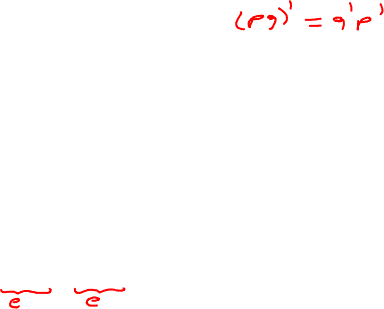 (pq)' = q'p'
e e